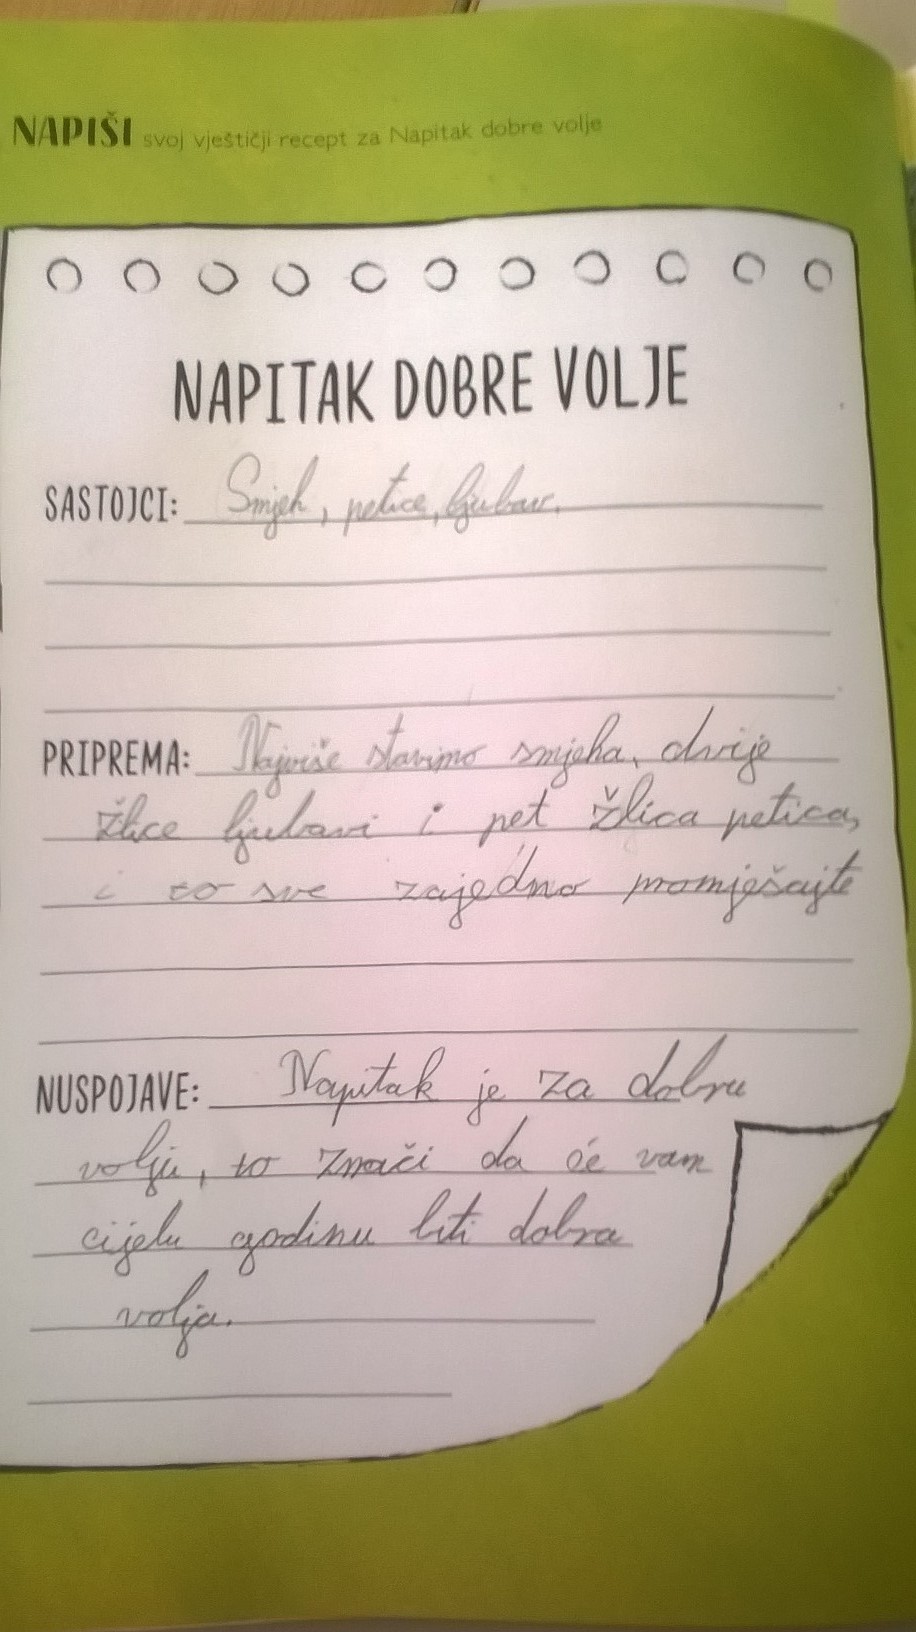 NAPIŠI svoj vještičji recept za Napitak dobre volje
NAPITAK DOBRE VOLJE
SASTOJCI: Smjeh, petice, ljubav.
PRIPREMA: Najviše stavimo smjeha, dvije
žlice ljubavi i pet žlica petica,
i to sve zajedno promješajte
NUSPOJAVE: Napitak je za dobru
volju, to znači da će vam
cijelu godinu biti dobra
volja.